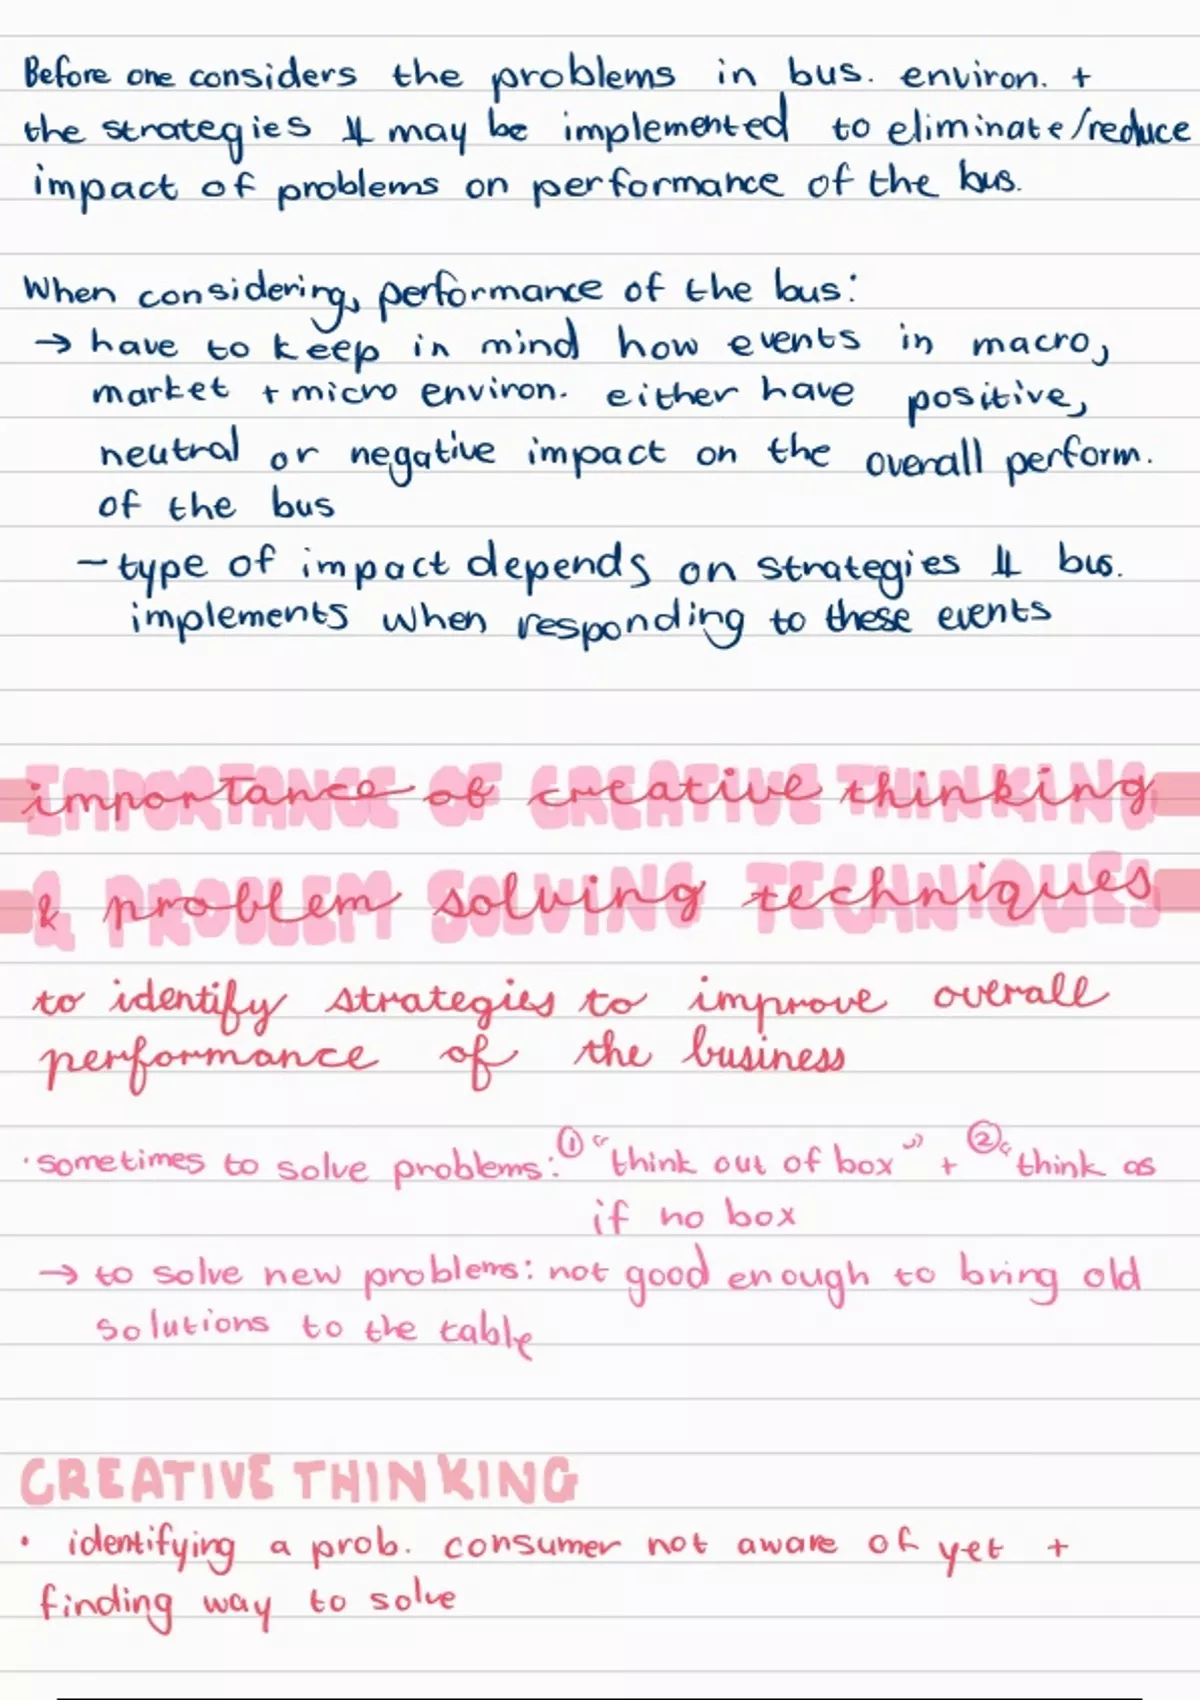 Before one considers the problems in bus. environ. +
the strategies may be implemented to eliminate/reduce
impact of problems on performance of the bus.
When considering, performance of the bus:
→ have to keep in mind how events in macro,
market + micro environ. either have positive,
neutral or negative impact on the overall perform.
of the bus
- type of impact depends on strategies bus.
implements when responding to these events
importance of creative thinking
& problem solving techniques
to identify strategies to improve overall
performance of the business
· sometimes to solve problems: ① "think out of box" + ② "think as
if no box
→ to solve new problems: not good enough to bring old
solutions to the table
CREATIVE THINKING
• identifying a prob. consumer not aware of yet +
finding way to solve